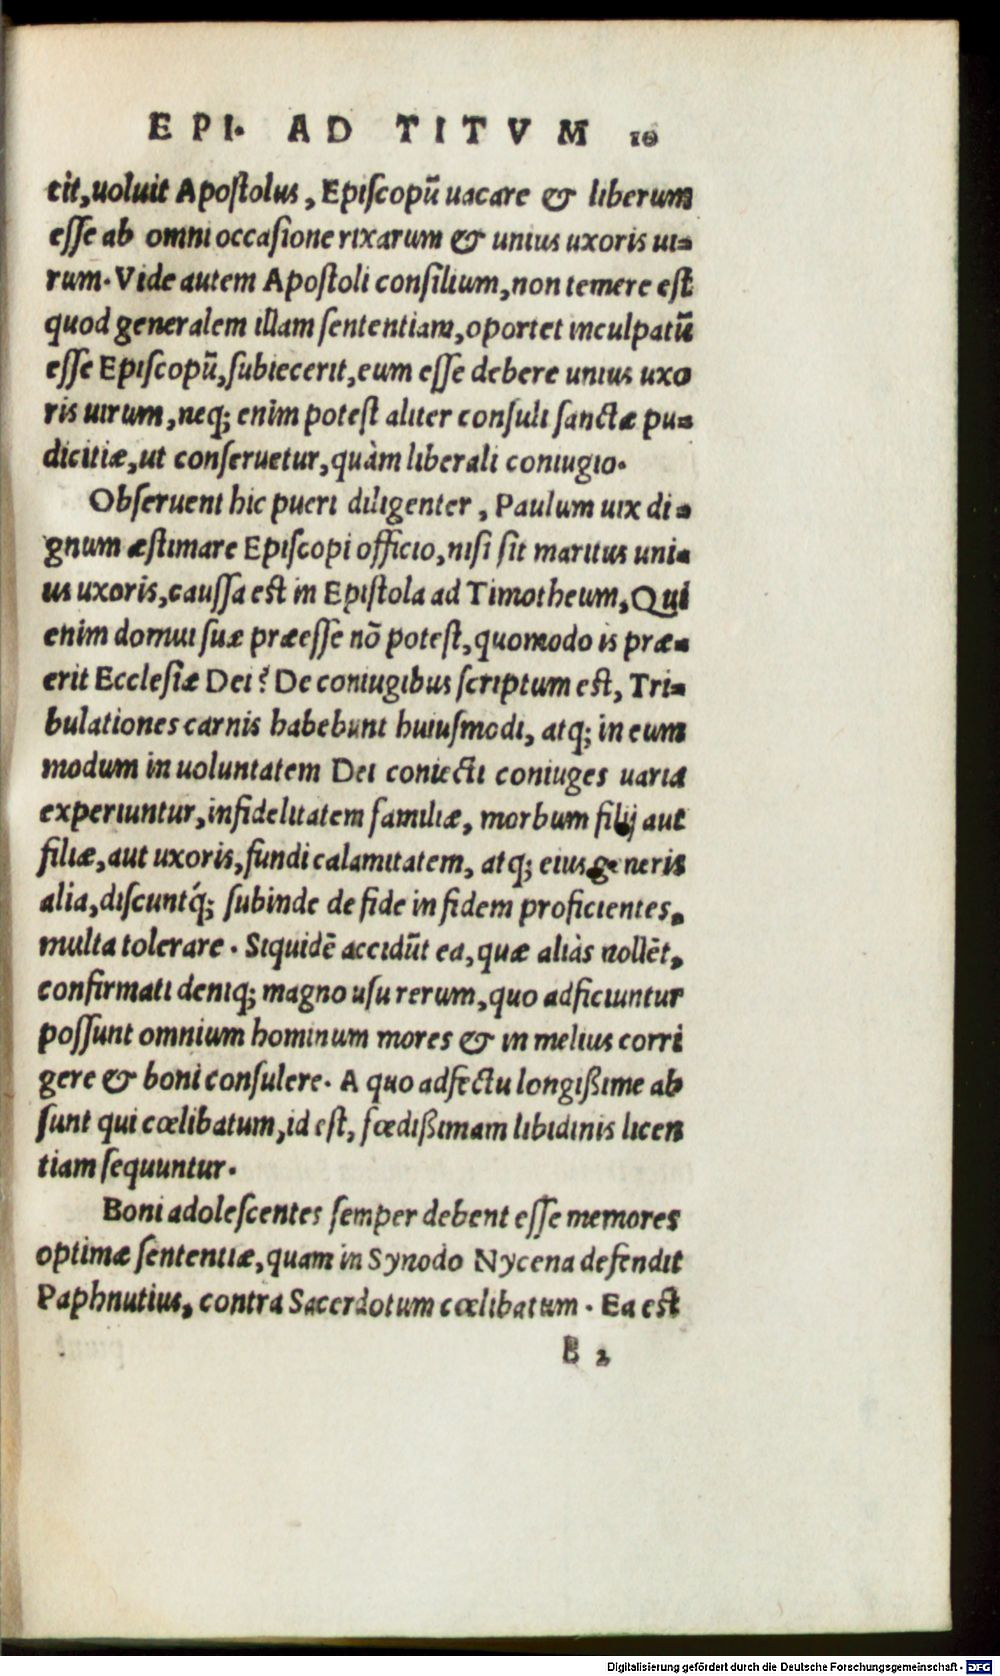 EPI. AD TITVM 10
cit, uoluit Apostolus, Episcopū uacare & liberum
esse ab omni occasione rixarum & unius uxoris ui=
rum. Vide autem Apostoli consilium, non temere est
quod generalem illam sententiam, oportet inculpatū
esse Episcopū, subiecerit, eum esse debere unius uxo
ris uirum, neq; enim potest aliter consuli sanctæ pu=
dicitiæ, ut conseruetur, quàm liberali coniugio.
Obseruent hic pueri diligenter, Paulum uix di=
gnum æstimare Episcopi officio, nisi sit maritus uni=
us uxoris, caussa est in Epistola ad Timotheum, Qui
enim domui suæ præesse nō potest, quomodo is præ=
erit Ecclesiæ Dei? De coniugibus scriptum est, Tri=
bulationes carnis habebunt huiusmodi, atq; in eum
modum in uoluntatem Dei coniecti coniuges uaria
experiuntur, infidelitatem familiæ, morbum filij aut
filiæ, aut uxoris, fundi calamitatem, atq; eius generis
alia, discuntq́; subinde de fide in fidem proficientes,
multa tolerare. Siquidē accidūt ea, quæ aliàs nollēt,
confirmati deniq; magno usu rerum, quo adficiuntur
possunt omnium hominum mores & in melius corri
gere & boni consulere. A quo adfectu longißime ab
sunt qui cœlibatum, id est, fœdißimam libidinis licen
tiam sequuntur.
Boni adolescentes semper debent esse memores
optimæ sententiæ, quam in Synodo Nycena defendit
Paphnutius, contra Sacerdotum cœlibatum. Ea est
B 2
Digitalisierung gefördert durch die Deutsche Forschungsgemeinschaft - DFG